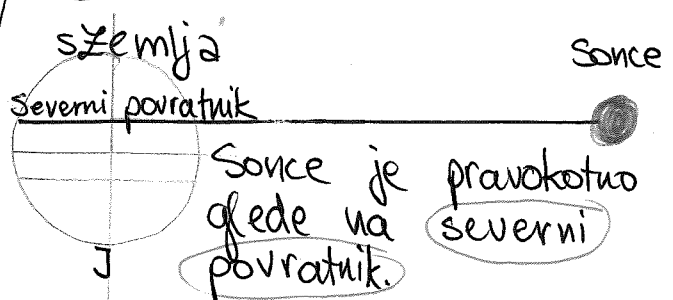 s zemlja
Sonce
severni povratnik
Sonce je pravokotno
glede na severni
povratnik.
J